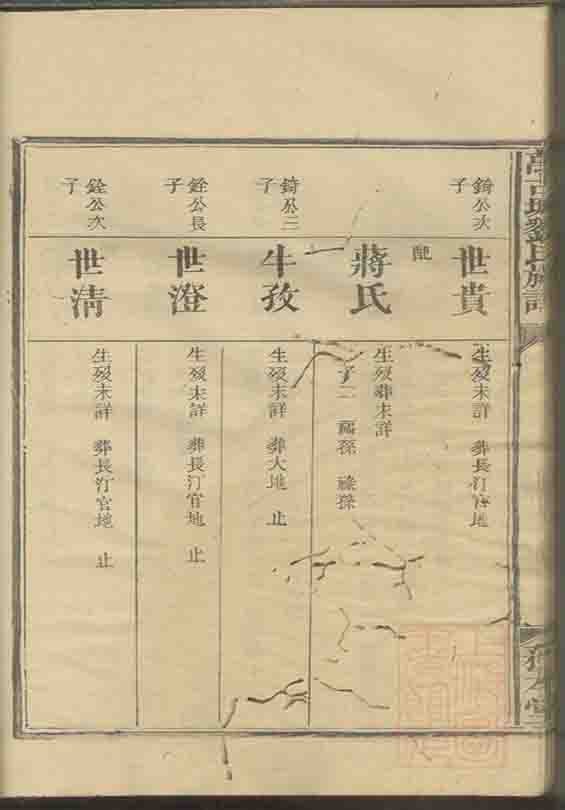 錡公次子
世貴
生歿未詳 葬長汀官地
配
蔣氏
生歿葬未詳
子二 福孫 祿孫
錡公三子
牛孜
生歿未詳 葬大地 止
銓公長子
世澄
生歿未詳 葬長汀官地 止
銓公次子
世清
生歿未詳 葬長汀官地 止